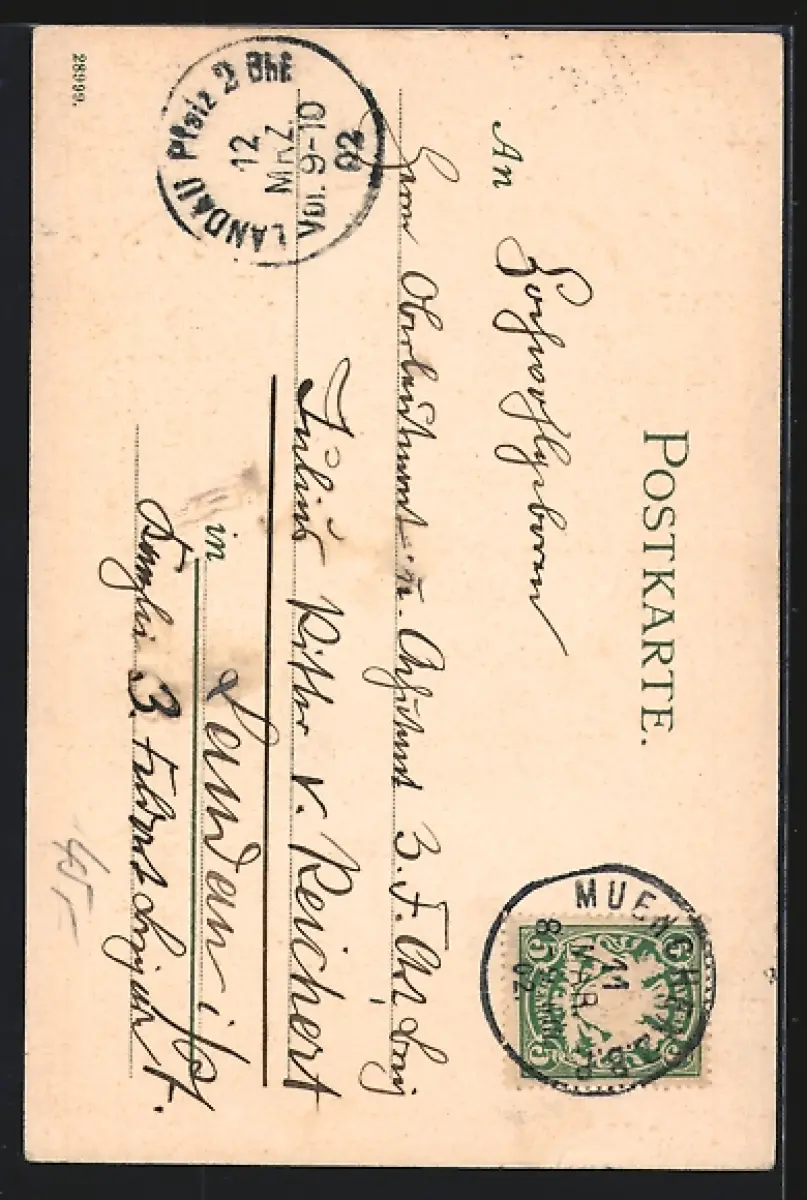 POSTKARTE.
An Hochwohlgeboren
Herrn Oberleutnant u. Adjutant 3. F. Art. Brig
Julius Ritter v. Reichert
in Landau i/Pf
3. Feldart. Brigade
MUENCHEN
11
MAR.
8
02.
5 5
LANDAU Pfalz 2 Bhf
12
MRZ.
Vor. 9-10
02
28999.